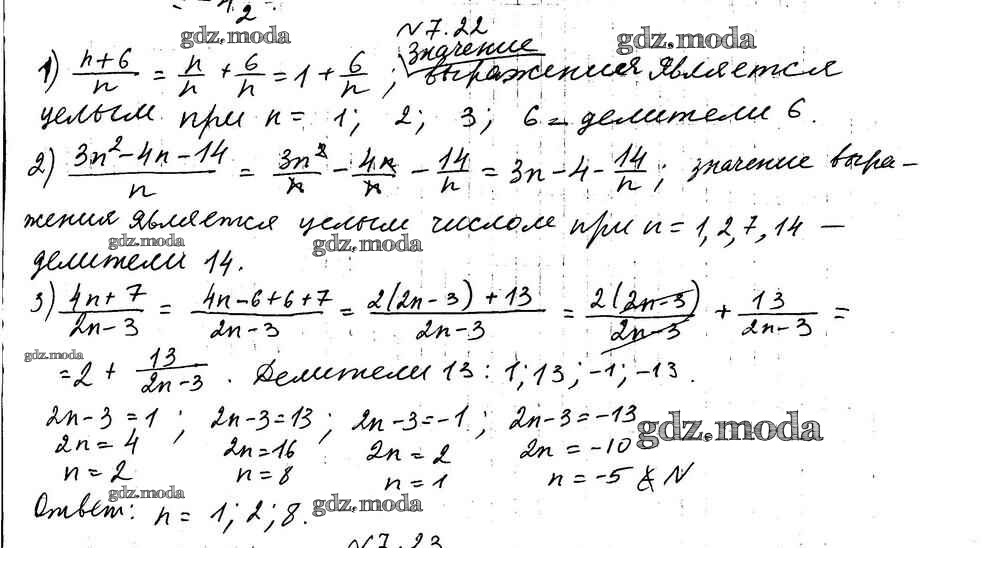 N 7.22
1) (n+6)/n = n/n + 6/n = 1 + 6/n ; значение выражения является
целым при n = 1; 2; 3; 6 = делители 6.
2) (3n² - 4n - 14)/n = 3n²/n - 4n/n - 14/n = 3n - 4 - 14/n ; значение выра-
жения является целым числом при n = 1, 2, 7, 14 —
делители 14.
3) (4n+7)/(2n-3) = (4n-6+6+7)/(2n-3) = (2(2n-3)+13)/(2n-3) = 2(2n-3)/(2n-3) + 13/(2n-3) =
= 2 + 13/(2n-3) . Делители 13: 1; 13; -1; -13.
2n-3 = 1 ; 2n-3 = 13 ; 2n-3 = -1 ; 2n-3 = -13
2n = 4 2n = 16 2n = 2 2n = -10
n = 2 n = 8 n = 1 n = -5 ∉ N
Ответ: n = 1; 2; 8.
N 7.23
gdz.moda
gdz.moda
gdz.moda
gdz.moda
gdz.moda
gdz.moda
gdz.moda
gdz.moda